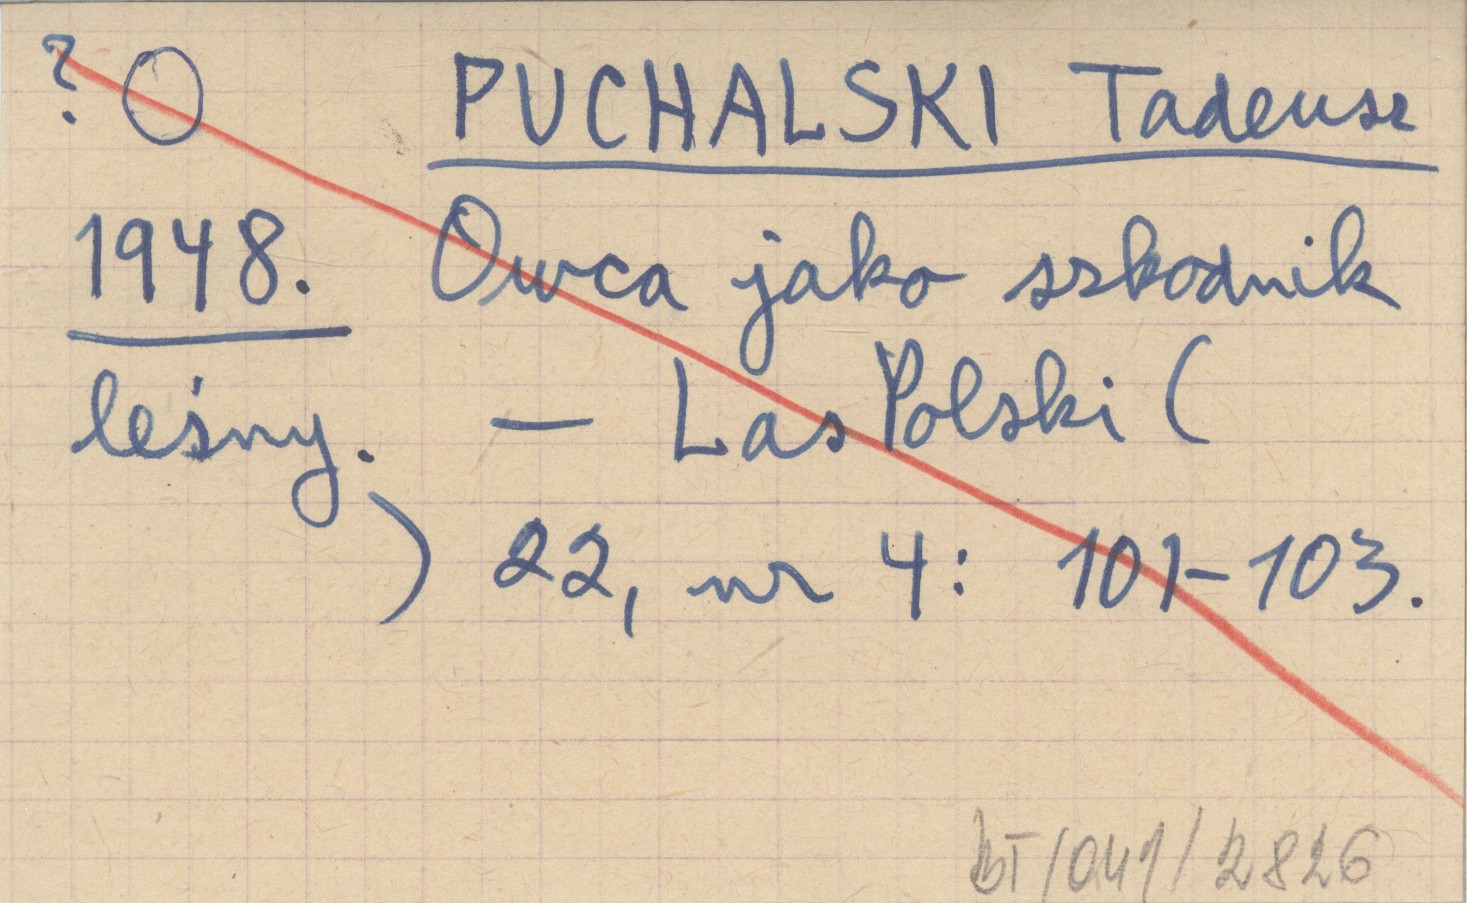 ? O PUCHALSKI Tadeusz
1948. Owca jako szkodnik
leśny. — Las Polski (
) 22, nr 4: 101-103.
BT/041/2826